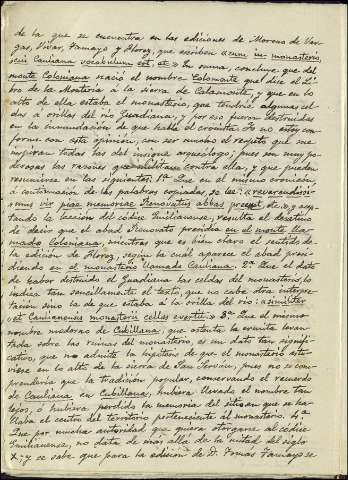 de la que se encuentra en las ediciones de Moreno de Var-
gas, Vivar, Tamayo y Florez, que escriben «cum in monasterio,
cui Cauliana vocabulum est, et» En suma, concluye que del
monte Coloniana nació el nombre Colomonte que dice el Li-
bro de la Montería a la sierra de Calamonte, y que en lo
alto de ella estaba el monasterio, que tendría algunas cel-
das a orillas del río Guadiana, y por eso fueron destruidas
en la inundación de que habla el cronista. Yo no estoy con-
forme con esta opinión, con ser mucho el respeto que me
inspiran todas las del insigne arqueólogo, pues son muy po-
derosas las razones que militan contra ella, y que pueden
resumirse en las siguientes: 1ª Que en el mismo cronicón,
a continuación de las palabras copiadas, se lee: «reverendissi-
mus vir piae memoriae Renovatus abbas preesset, &», y acep-
tando la lección del códice Emilianense, resulta el desatino
de decir que el abad Renovato presidia en el monte lla-
mado Coloniano, mientras que es bien claro el sentido de
la edición de Florez, según la cual aparece el abad presi-
diendo en el monasterio llamado Cauliana. 2ª Que el dato
de haber destruido el Guadiana las celdas del monasterio, lo
indica tan sencillamente el texto, que no cabe otra interpre-
tación sino la de que estaba á la orilla del río: «similiter
et Caulianensis monasterii cellas evertit.» 3ª Que el mismo
nombre moderno de Cubillana, que ostenta la ermita levan-
tada sobre las ruinas del monasterio, es un dato tan signifi-
cativo, que no admite la hipótesis de que el monasterio estu-
viese en lo alto de la sierra de San Serván, pues no se com-
prendería que la tradición popular, conservando el recuerdo
de Cauliana en Cubillana, hubiera llevado el nombre tan
lejos, ó hubiera perdido la memoria del sitio en que se ha-
llaba el centro del territorio perteneciente al monasterio. 4ª
Que por mucha autoridad que quiera otorgarse al códice
Emilianense, no data de más allá de la mitad del siglo
X; y se sabe que para la edición de D. Tomas Tamayo se